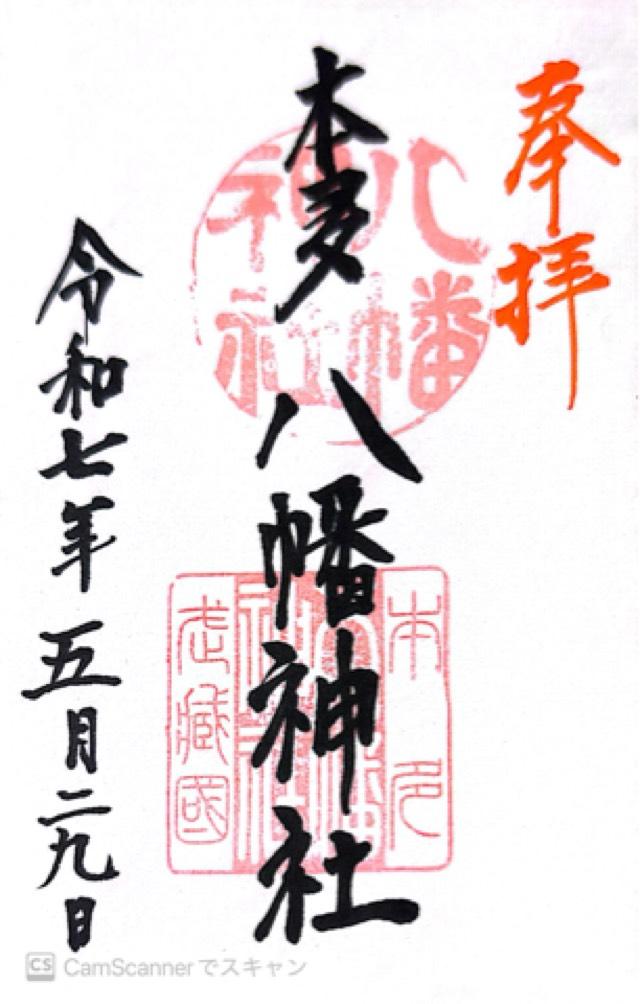 奉拝
本多八幡神社
八幡
神社
本多
八幡
神社
武蔵國
令和七年五月二九日
CS CamScannerでスキャン